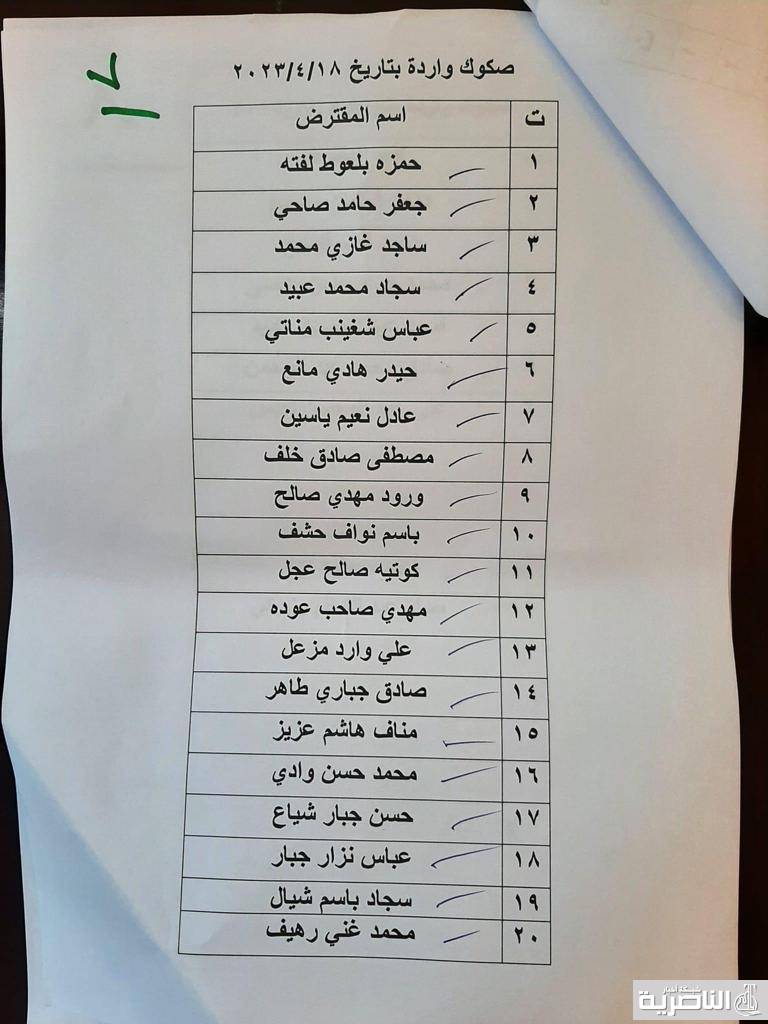 صكوك واردة بتاريخ ٢٠٢٣/٤/١٨
ت اسم المقترض
١ حمزه بلعوط لفته
٢ جعفر حامد صاحي
٣ ساجد غازي محمد
٤ سجاد محمد عبيد
٥ عباس شغينب مناتي
٦ حيدر هادي مانع
٧ عادل نعيم ياسين
٨ مصطفى صادق خلف
٩ ورود مهدي صالح
١٠ باسم نواف حشف
١١ كوتيه صالح عجل
١٢ مهدي صاحب عوده
١٣ علي وارد مزعل
١٤ صادق جباري طاهر
١٥ مناف هاشم عزيز
١٦ محمد حسن وادي
١٧ حسن جبار شياع
١٨ عباس نزار جبار
١٩ سجاد باسم شيال
٢٠ محمد غني رهيف
شبكة أخبار
الناصرية